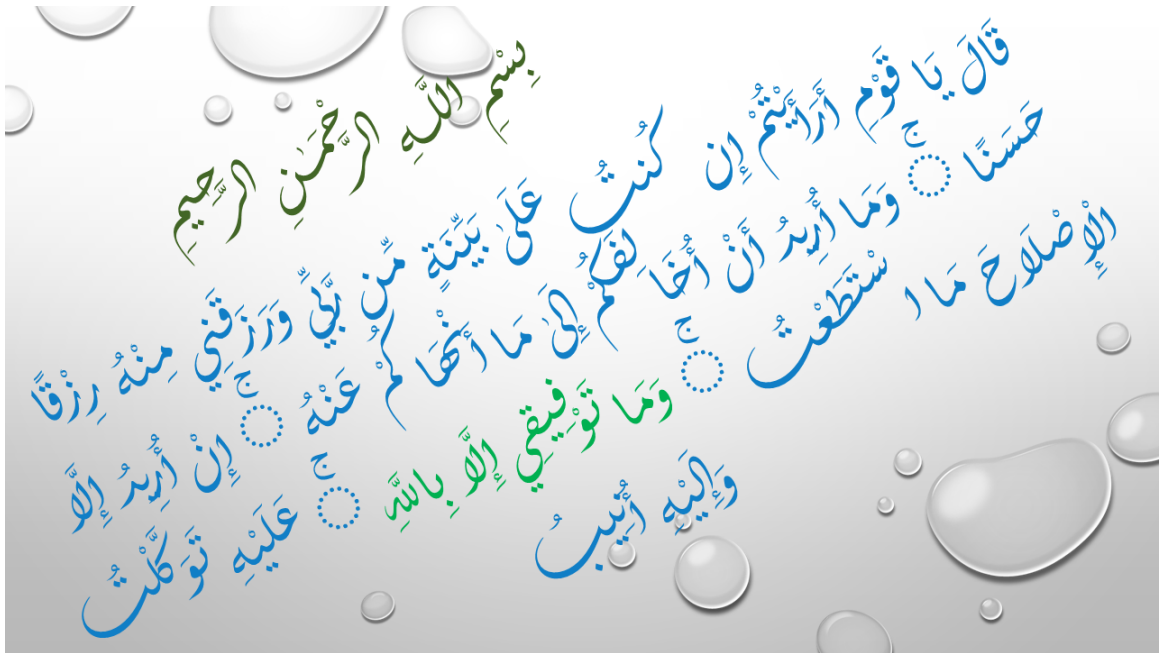 بِسْمِ اللَّهِ الرَّحْمَٰنِ الرَّحِيمِ
قَالَ يَا قَوْمِ أَرَأَيْتُمْ إِن كُنتُ عَلَىٰ بَيِّنَةٍ مِّن رَّبِّي وَرَزَقَنِي مِنْهُ رِزْقًا
حَسَنًا ۚ وَمَا أُرِيدُ أَنْ أُخَالِفَكُمْ إِلَىٰ مَا أَنْهَاكُمْ عَنْهُ ۚ إِنْ أُرِيدُ إِلَّا
الْإِصْلَاحَ مَا اسْتَطَعْتُ ۚ وَمَا تَوْفِيقِي إِلَّا بِاللَّهِ ۚ عَلَيْهِ تَوَكَّلْتُ
وَإِلَيْهِ أُنِيبُ